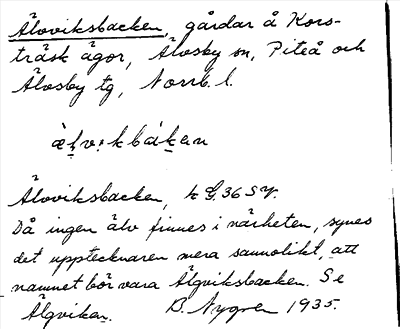 Älvviksbacken, gårdar å Kors-
träsk ägor, Älvsby sn, Piteå och
Älvsby tg, Norrb. l.
Älvviksbacken, k G. 36 SV.
Då ingen älv finnes i närheten, synes
det upptecknaren mera sannolikt, att
namnet bör vara Älgviksbacken. Se
Älgvikan. B. Nygren 1935.